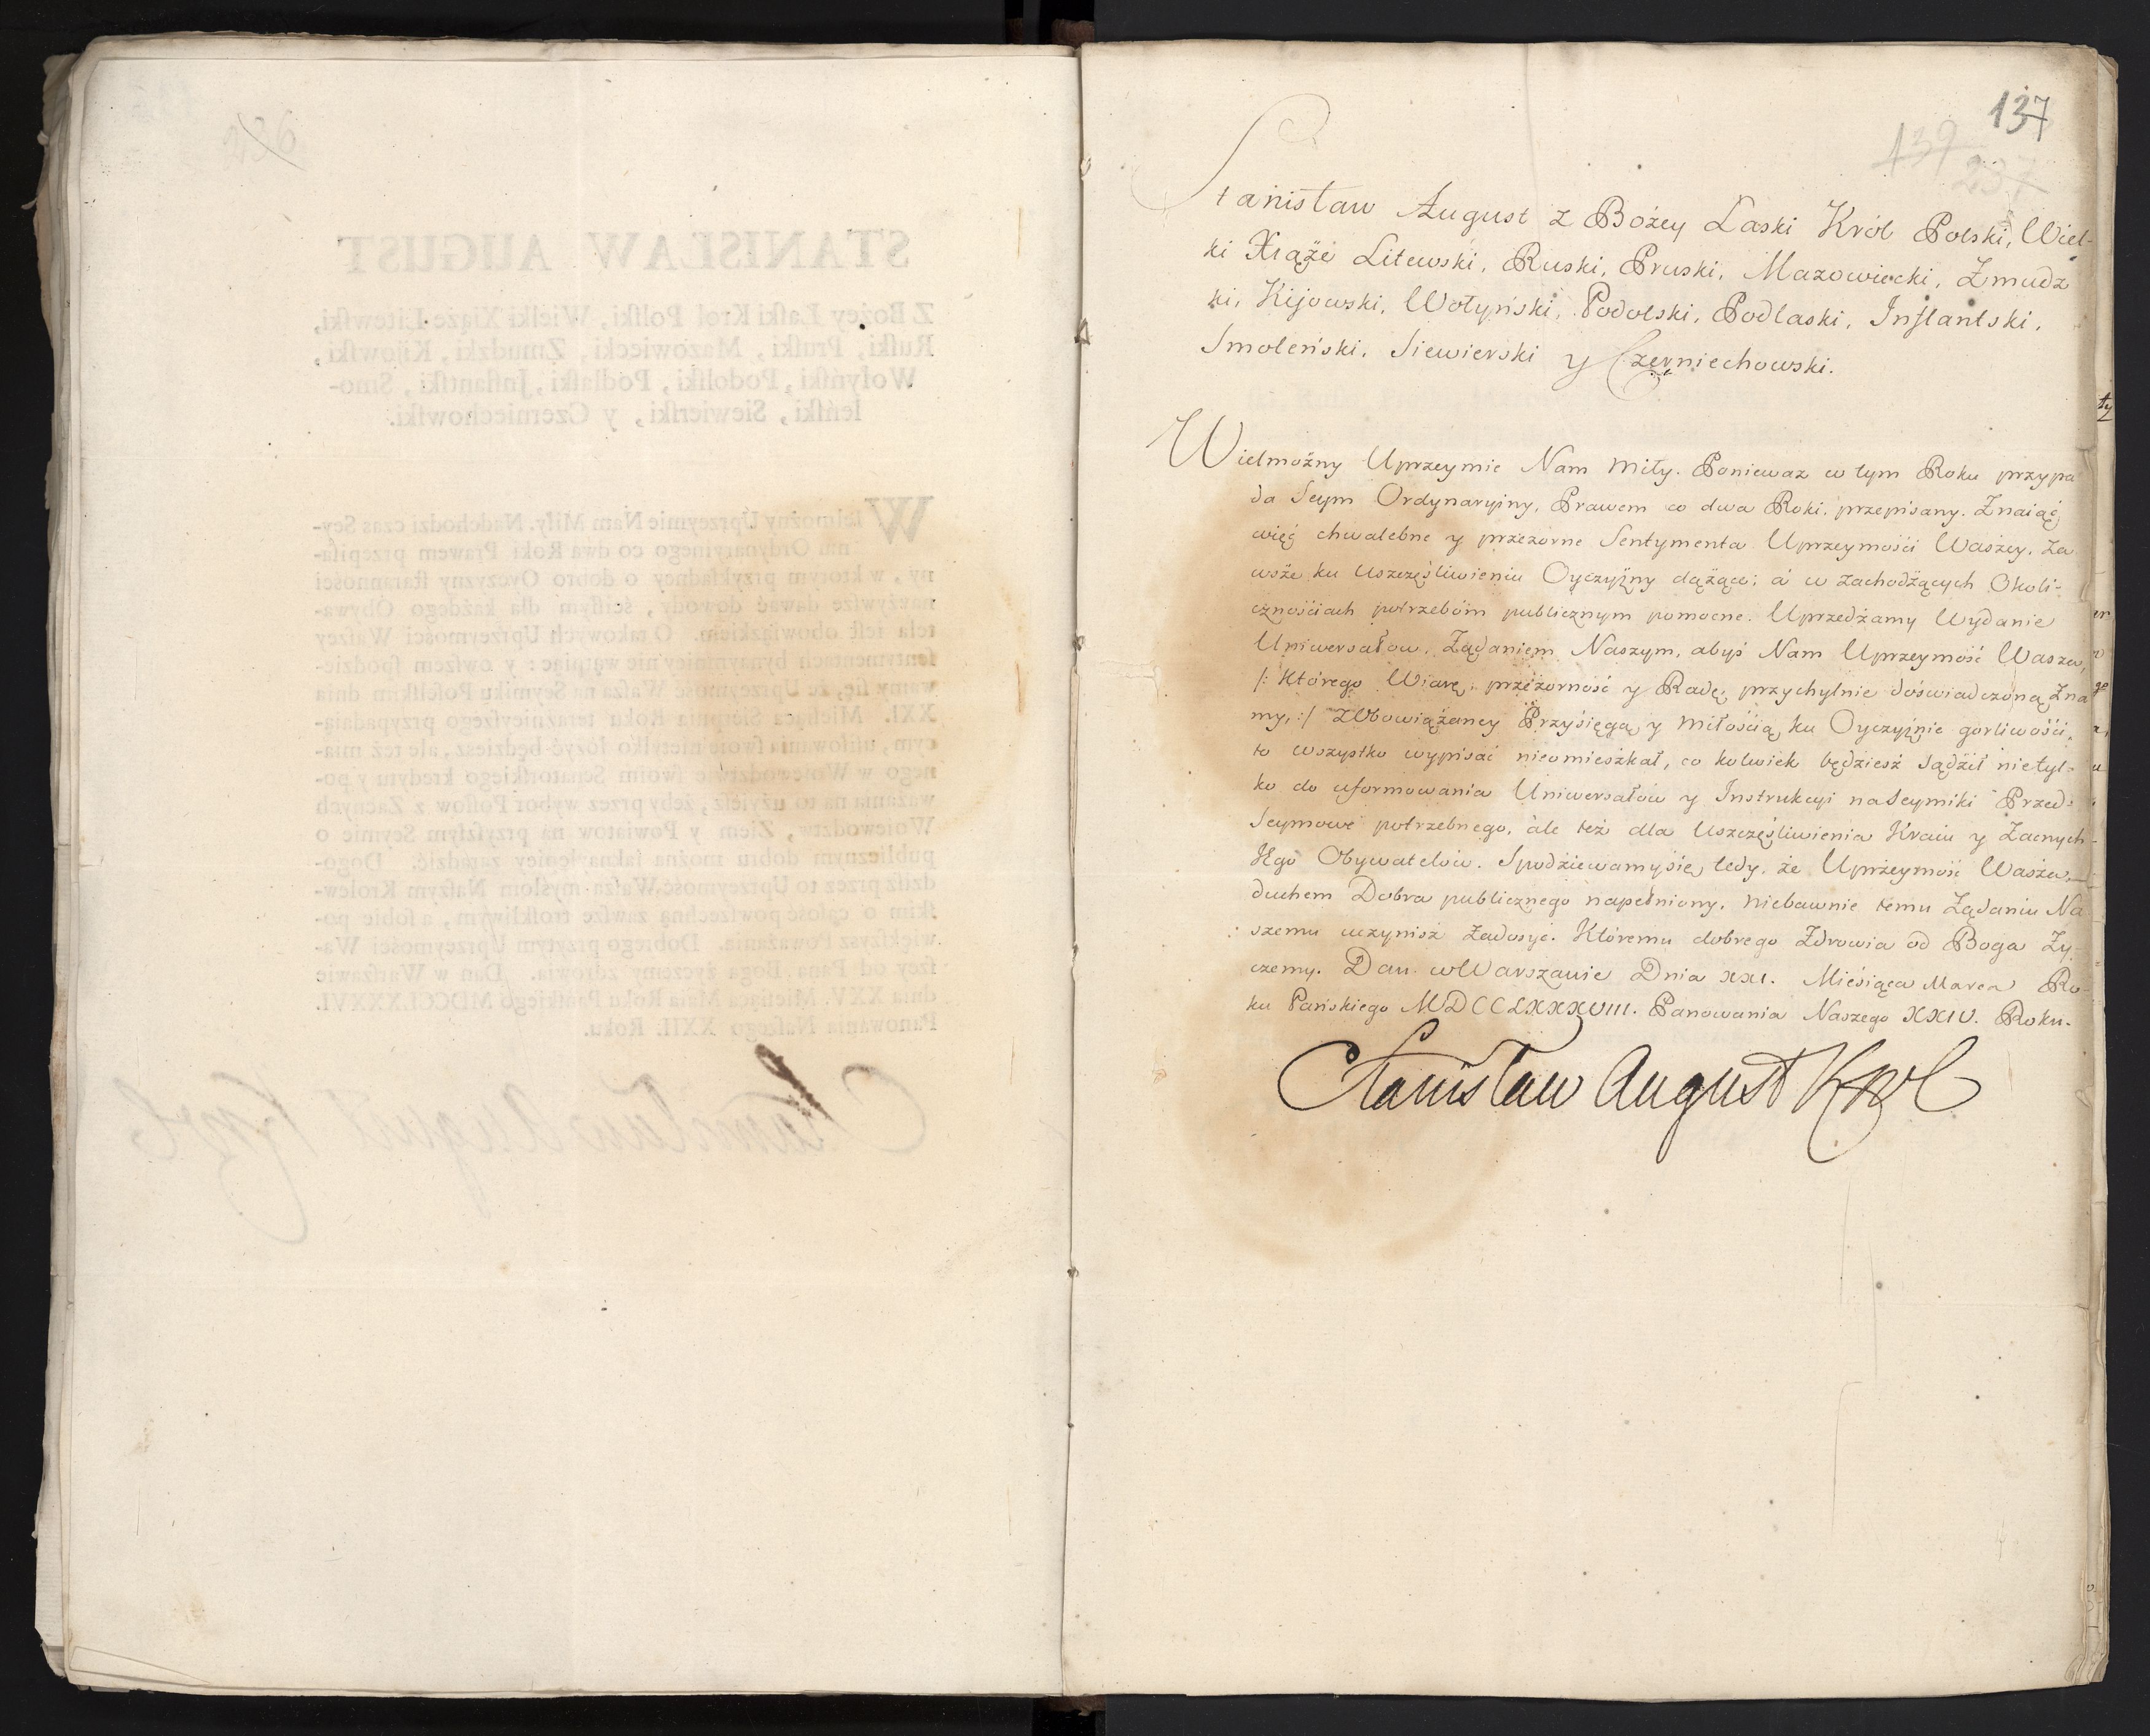 236
STANISŁAW AUGUST
Z Bożey Łaſki Krol Polſki, Wielki Xiąże Litewſki,
Ruſki, Pruſki, Mazowiecki, Zmudzki, Kijowſki,
Wołyńſki, Podolſki, Podlaſki, Jnflantſki, Smo-
leńſki, Siewierſki, y Czerniechowſki.
Wielmożny Uprzeymie Nam Miły. Nadchodzi czas Sey-
mu Ordynaryinego co dwa Roki Prawem przepiſa-
ny, w ktorym przykładney o dobro Oyczyzny ſtaranności
nayżywſze dawać dowody, ściſłym dla każdego Obywa-
tela ieſt obowiązkiem. O takowych Uprzeymości Waſzey
ſentymentach bynaymniey nie wątpiąc: y owſzem ſpodzie-
wamy ſię, że Uprzeymość Waſza na Seymiku Poſelſkim dnia
XXI. Mieſiąca Sierpnia Roku teraźnieyſzego przypadaią-
cym, uſiłowania ſwoie nietylko łożyć będzieſz, ale też mia-
nego w Woiewodztwie ſwoim Senatorſkiego kredytu y po-
ważania na to użyieſz, żeby przez wybor Poſłow z Zacnych
Woiewodztw, Ziem y Powiatow na przyſzłym Seymie o
publicznym dobru można ſkuteczniey zaradzić. Dogo-
dziſz przez to Uprzeymość Waſza myślom Naſzym Krolew-
ſkim o całość powſzechną zawſze troſkliwym, a ſobie po-
więkſzysz Poważania. Dobrego przytym Uprzeymości Wa-
ſzey od Pana Boga życzemy zdrowia. Dan w Warſzawie
dnia XXV. Mieſiąca Maia Roku Pańſkiego MDCCLXXXVI.
Panowania Naſzego XXII. Roku.
Stanisław August Krol
137
139
237
Stanisław August z Bożey Łaski Król Polski, Wiel-
ki Xiąże Litewski, Ruski, Pruski, Mazowiecki, Zmudz
ki, Kijowski, Wołyński, Podolski, Podlaski, Inflantski,
Smoleński, Siewierski y Czerniechowski.
Wielmożny Uprzeymie Nam Miły. Ponieważ w tym Roku przypa
da Seym Ordynaryiny, Prawem co dwa Roki przepisany. Znaiąc
więc chwalebne y przezorne Sentymenta Uprzeymości Waszey, za
wsze ku Uszczęśliwieniu Oyczyzny dążące; á w zachodzących Okoli-
cznościach potrzebóm publicznym pomocne. Uprzedzamy Wydanie
Uniwersałow, Żądaniem Naszym, abyś Nam Uprzeymość Wasza,
/: Którego Wiarę, przezorność y Radę, przychylnie doświadczoną zna
my, :/ z Obowiązaney Przysięgą y Miłością ku Oyczyznie gorliwości,
to wszystko wypisać nieomieszkał, co kolwiek będziesz sądził nietyl-
ko do uformowania Uniwersałow y Instrukcyi na Seymiki Przed-
Seymowe potrzebnego, ále też dla Uszczęśliwienia Kraiu y Zacnych
JEgo Obywatelów. Spodziewamy się tedy, że Uprzeymość Wasza,
duchem Dobra publicznego napełniony, niebawnie temu Żądaniu Na
szemu uczynisz zadosyć. Któremu dobrego Zdrowia od Boga Ży-
czemy. Dan. w Warszawie Dnia XXI. Miesiąca Marca Ro-
ku Pańskiego MDCCLXXXVIII. Panowania Naszego XXIV. Roku.
Stanisław August Król